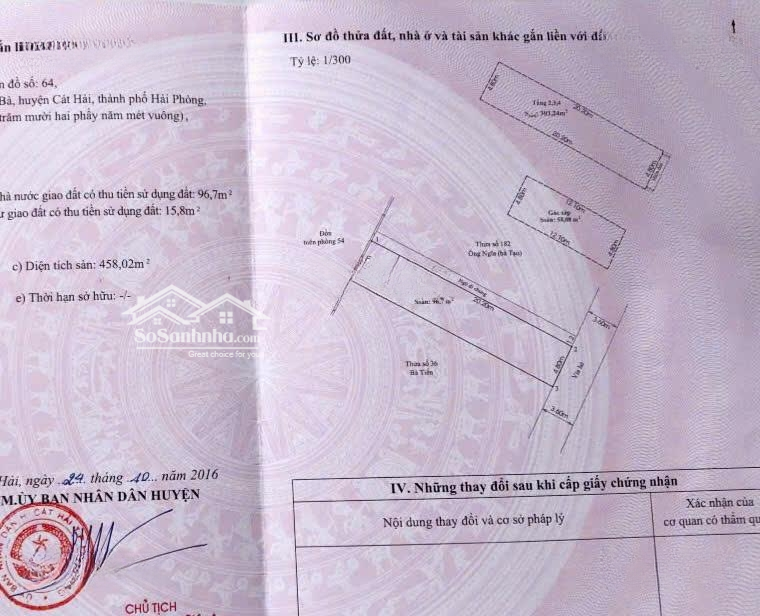 n đồ số: 64,
Bà, huyện Cát Hải, thành phố Hải Phòng,
trăm mười hai phẩy năm mét vuông),
hà nước giao đất có thu tiền sử dụng đất: 96,7m²
ư giao đất có thu tiền sử dụng đất: 15,8m²
c) Diện tích sàn: 458,02m²
e) Thời hạn sở hữu: -/-
SoSanhnha.com
Great choice for you
Hải, ngày 24 tháng 10 năm 2016
M.ỦY BAN NHÂN DÂN HUYỆN
CÁT HẢI
CHỦ TỊCH
III. Sơ đồ thửa đất, nhà ở và tài sản khác gắn liền với đấ
Tỷ lệ: 1/300
4.80m
Tầng 2,3,4
20.20m
20.20m
4.80m
4.80m
12.10m
Gác xép
12.10m
4.80m
Đồn
biên phòng 54
Thửa số 182
Ông Nghĩa (bà Tạo)
1
Ngõ đi chung
20.20m
Ssàn: 96,7 m²
3.60m
2
4.80m
Vỉa hè
3
3.60m
Thửa số 36
Bà Tiến
IV. Những thay đổi sau khi cấp giấy chứng nhận
Nội dung thay đổi và cơ sở pháp lý
Xác nhận của
cơ quan có thẩm qu